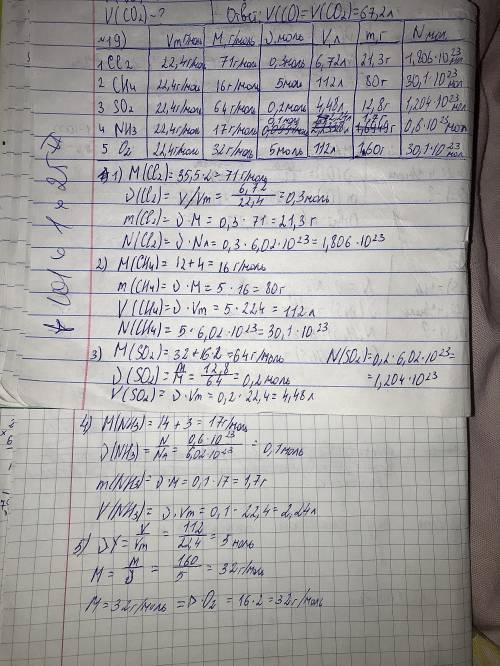 V(CO2) - ? Ответ: V(CO) = V(CO2) = 67,2л
№19) Vm г/моль M, г/моль ν моль V, л m, г N мол.
1 Cl2 22,4 г/моль 71 г/моль 0,3 моль 6,72л 21,3 г 1,806·10^23 мол
2 CH4 22,4 г/моль 16 г/моль 5 моль 112л 80г 30,1·10^23 мол
3 SO2 22,4 г/моль 64 г/моль 0,2 моль 4,48л 12,8г 1,204·10^23 мол
4 NH3 22,4 г/моль 17 г/моль 0,1 моль 1,7г 0,6·10^23 мол
5 O2 22,4 г/моль 32 г/моль 5 моль 112л 160г 30,1·10^23 мол
1) M(Cl2) = 35,5·2 = 71 г/моль
ν(Cl2) = V/Vm = 6,72/22,4 = 0,3 моль
m(Cl2) = ν·M = 0,3·71 = 21,3 г
N(Cl2) = ν·NA = 0,3·6,02·10^23 = 1,806·10^23
2) M(CH4) = 12+4 = 16 г/моль
m(CH4) = ν·M = 5·16 = 80г
V(CH4) = ν·Vm = 5·22,4 = 112л
N(CH4) = 5·6,02·10^23 = 30,1·10^23
3) M(SO2) = 32+16·2 = 64 г/моль N(SO2) = 0,2·6,02·10^23 =
ν(SO2) = m/M = 12,8/64 = 0,2 моль = 1,204·10^23
V(SO2) = ν·Vm = 0,2·22,4 = 4,48л
4) M(NH3) = 14+3 = 17 г/моль
ν(NH3) = N/NA = 0,6·10^23/6,02·10^23 = 0,1 моль
m(NH3) = ν·M = 0,1·17 = 1,7г
V(NH3) = ν·Vm = 0,1-22,4 = 2,24л
5) νX = V/Vm = 112/22,4 = 5 моль
M = m/ν = 160/5 = 32 г/моль
M = 32 г/моль => O2 = 16·2 = 32 г/моль